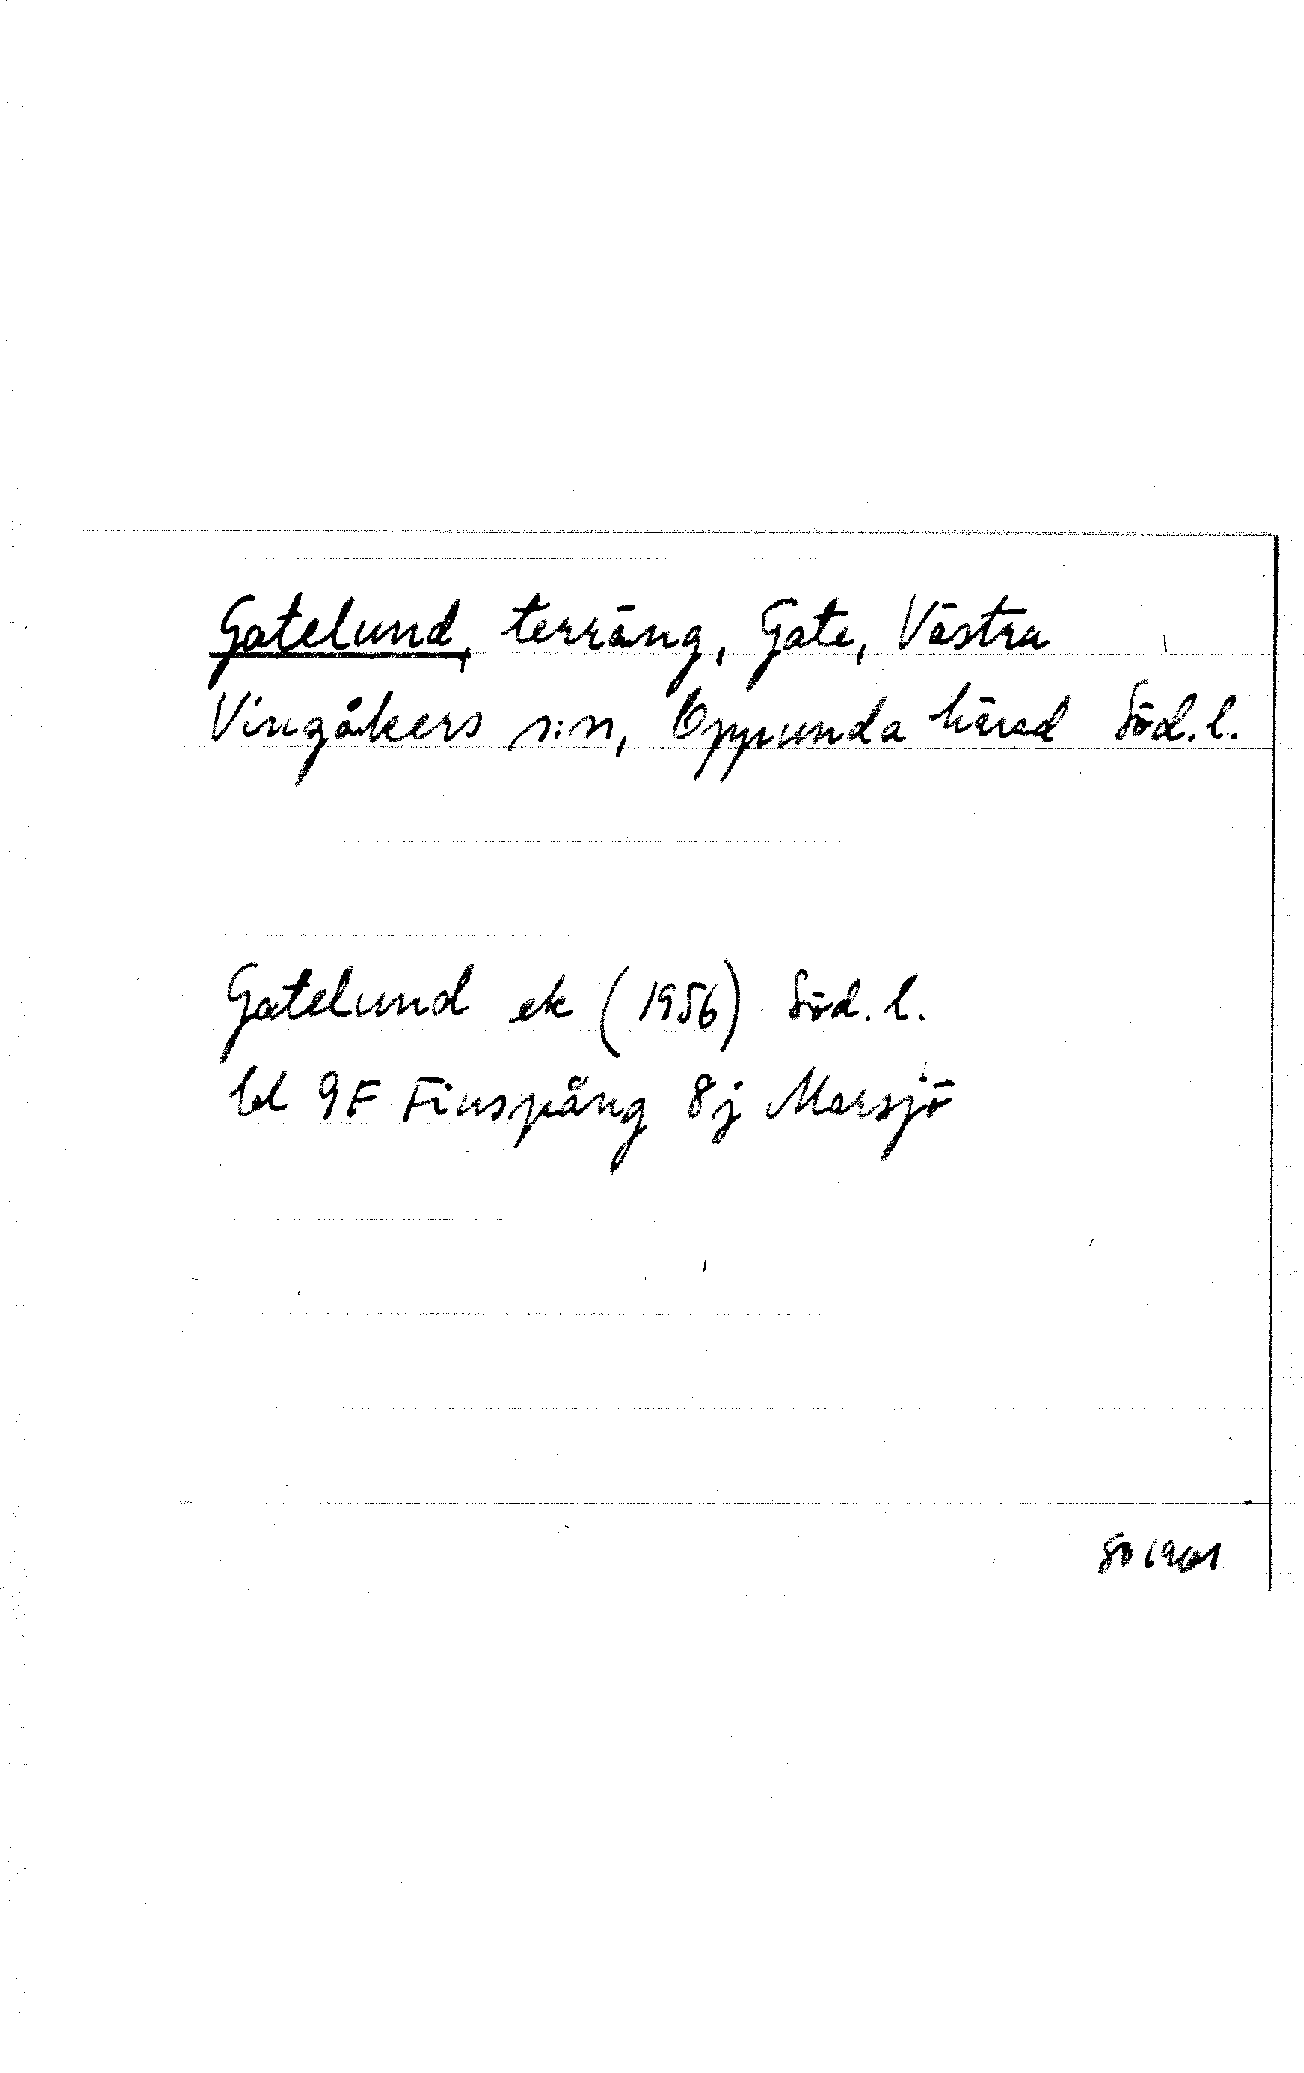 Gatelund, terräng, Gate, Västra
Vingåkers s:n, Oppunda härad Söd. l.
Gatelund ek (1956) Söd. l.
bl 9F Finspång 8j Marsjö
1961